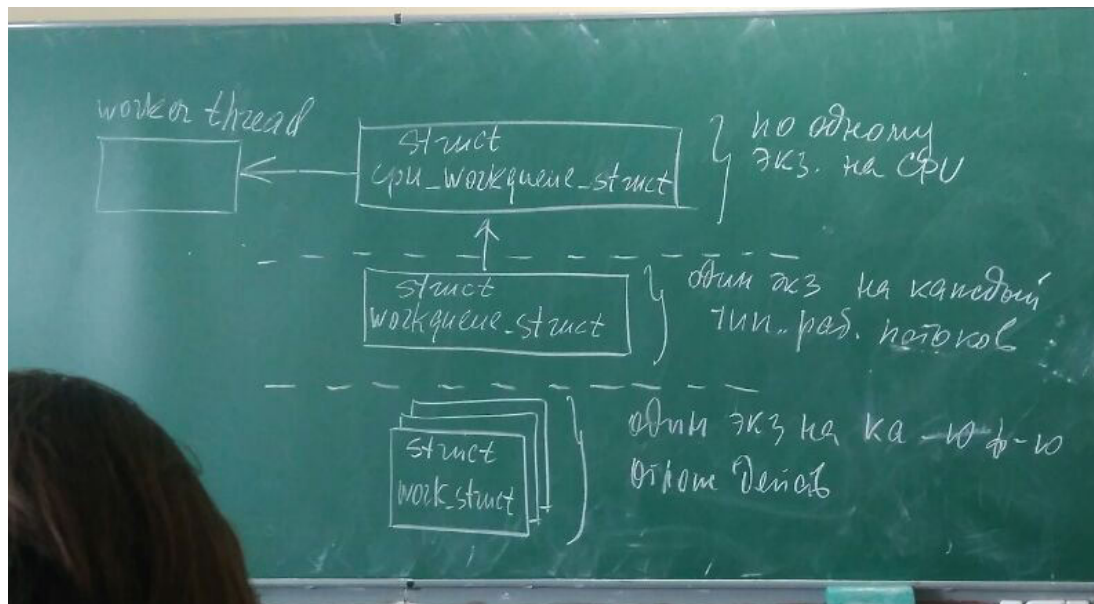 worker thread
struct
cpu_workqueue_struct
по одному
экз. на CPU
struct
workqueue_struct
один экз на каждый
тип. раб. потоков
struct
work_struct
один экз на ка-ю ф-ю
отлож действ